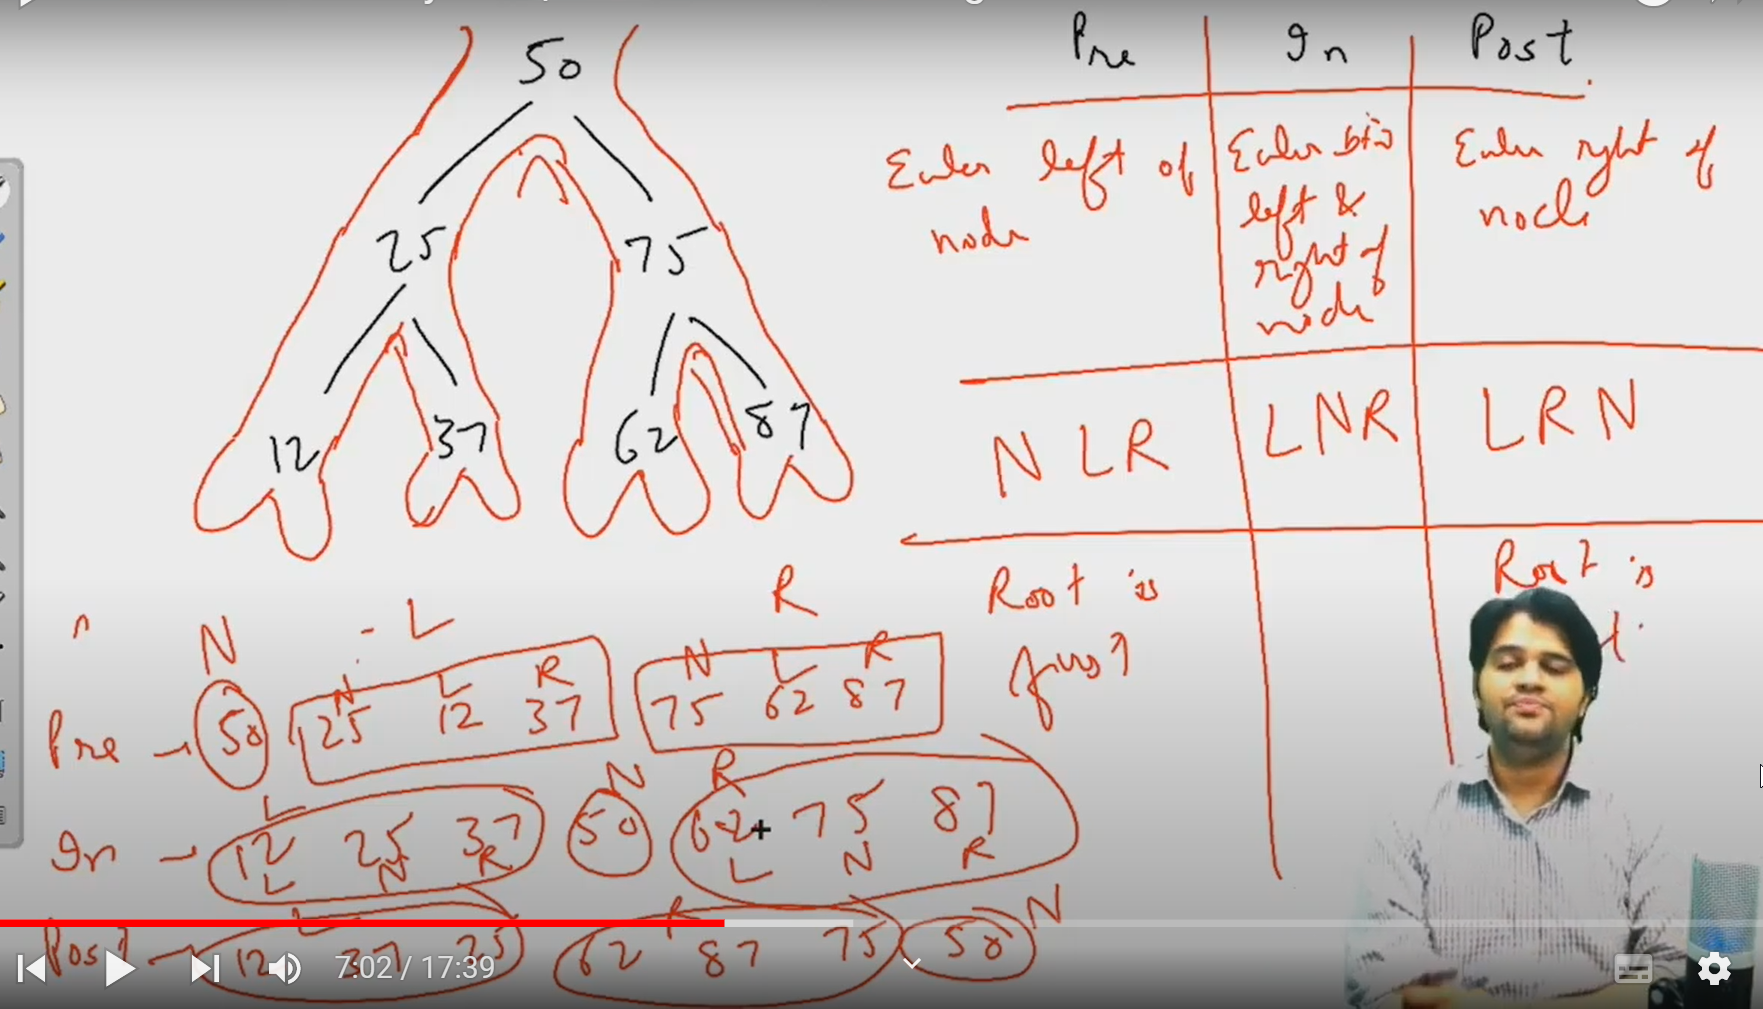 50
25 75
12 37 62 87
Pre In Post
Euler left of
node
Euler btw
left &
right of
node
Euler right of
node
N L R
L N R
L R N
Root is
first
Root is
N L R
N L R N L R
Pre → 50 25 12 37 75 62 87
L N R
In → 12 25 37 50 62 75 87
L N R L N R
L R N
Post → 12 37 25 62 87 75 50
7:02 / 17:39